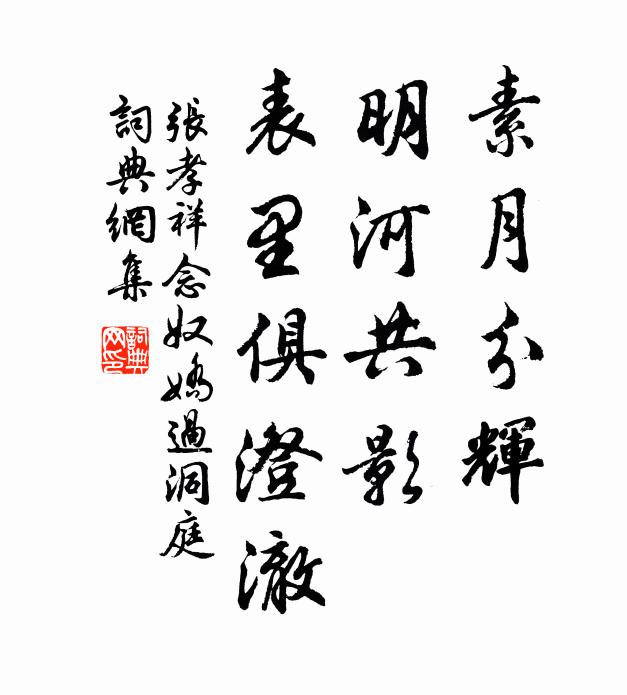 素月分輝
明河共影
表里俱澄澈
張孝祥念奴嬌過洞庭
詞典網集
詞典網印